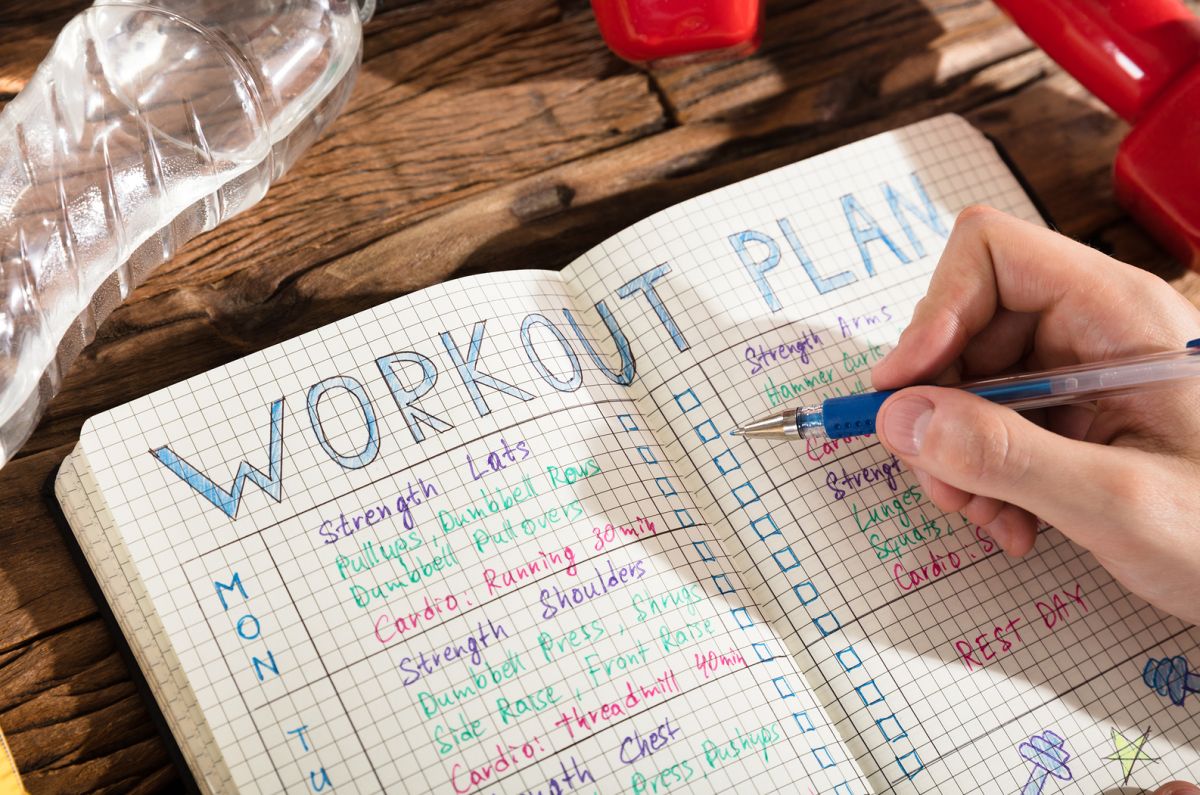 WORKOUT PLAN
MON
Strength Lats
Pullups, Dumbbell Rows
Dumbbell Pullovers
Cardio: Running 30min
TU
Strength Shoulders
Dumbbell Press, Shrugs
Side Raise, Front Raise
Cardio: threadmill 40min
Chest
Press, Pushups
Strength Arms
Hammer Curls
Strength
Lunges
Squats,
Cardio:
REST DAY